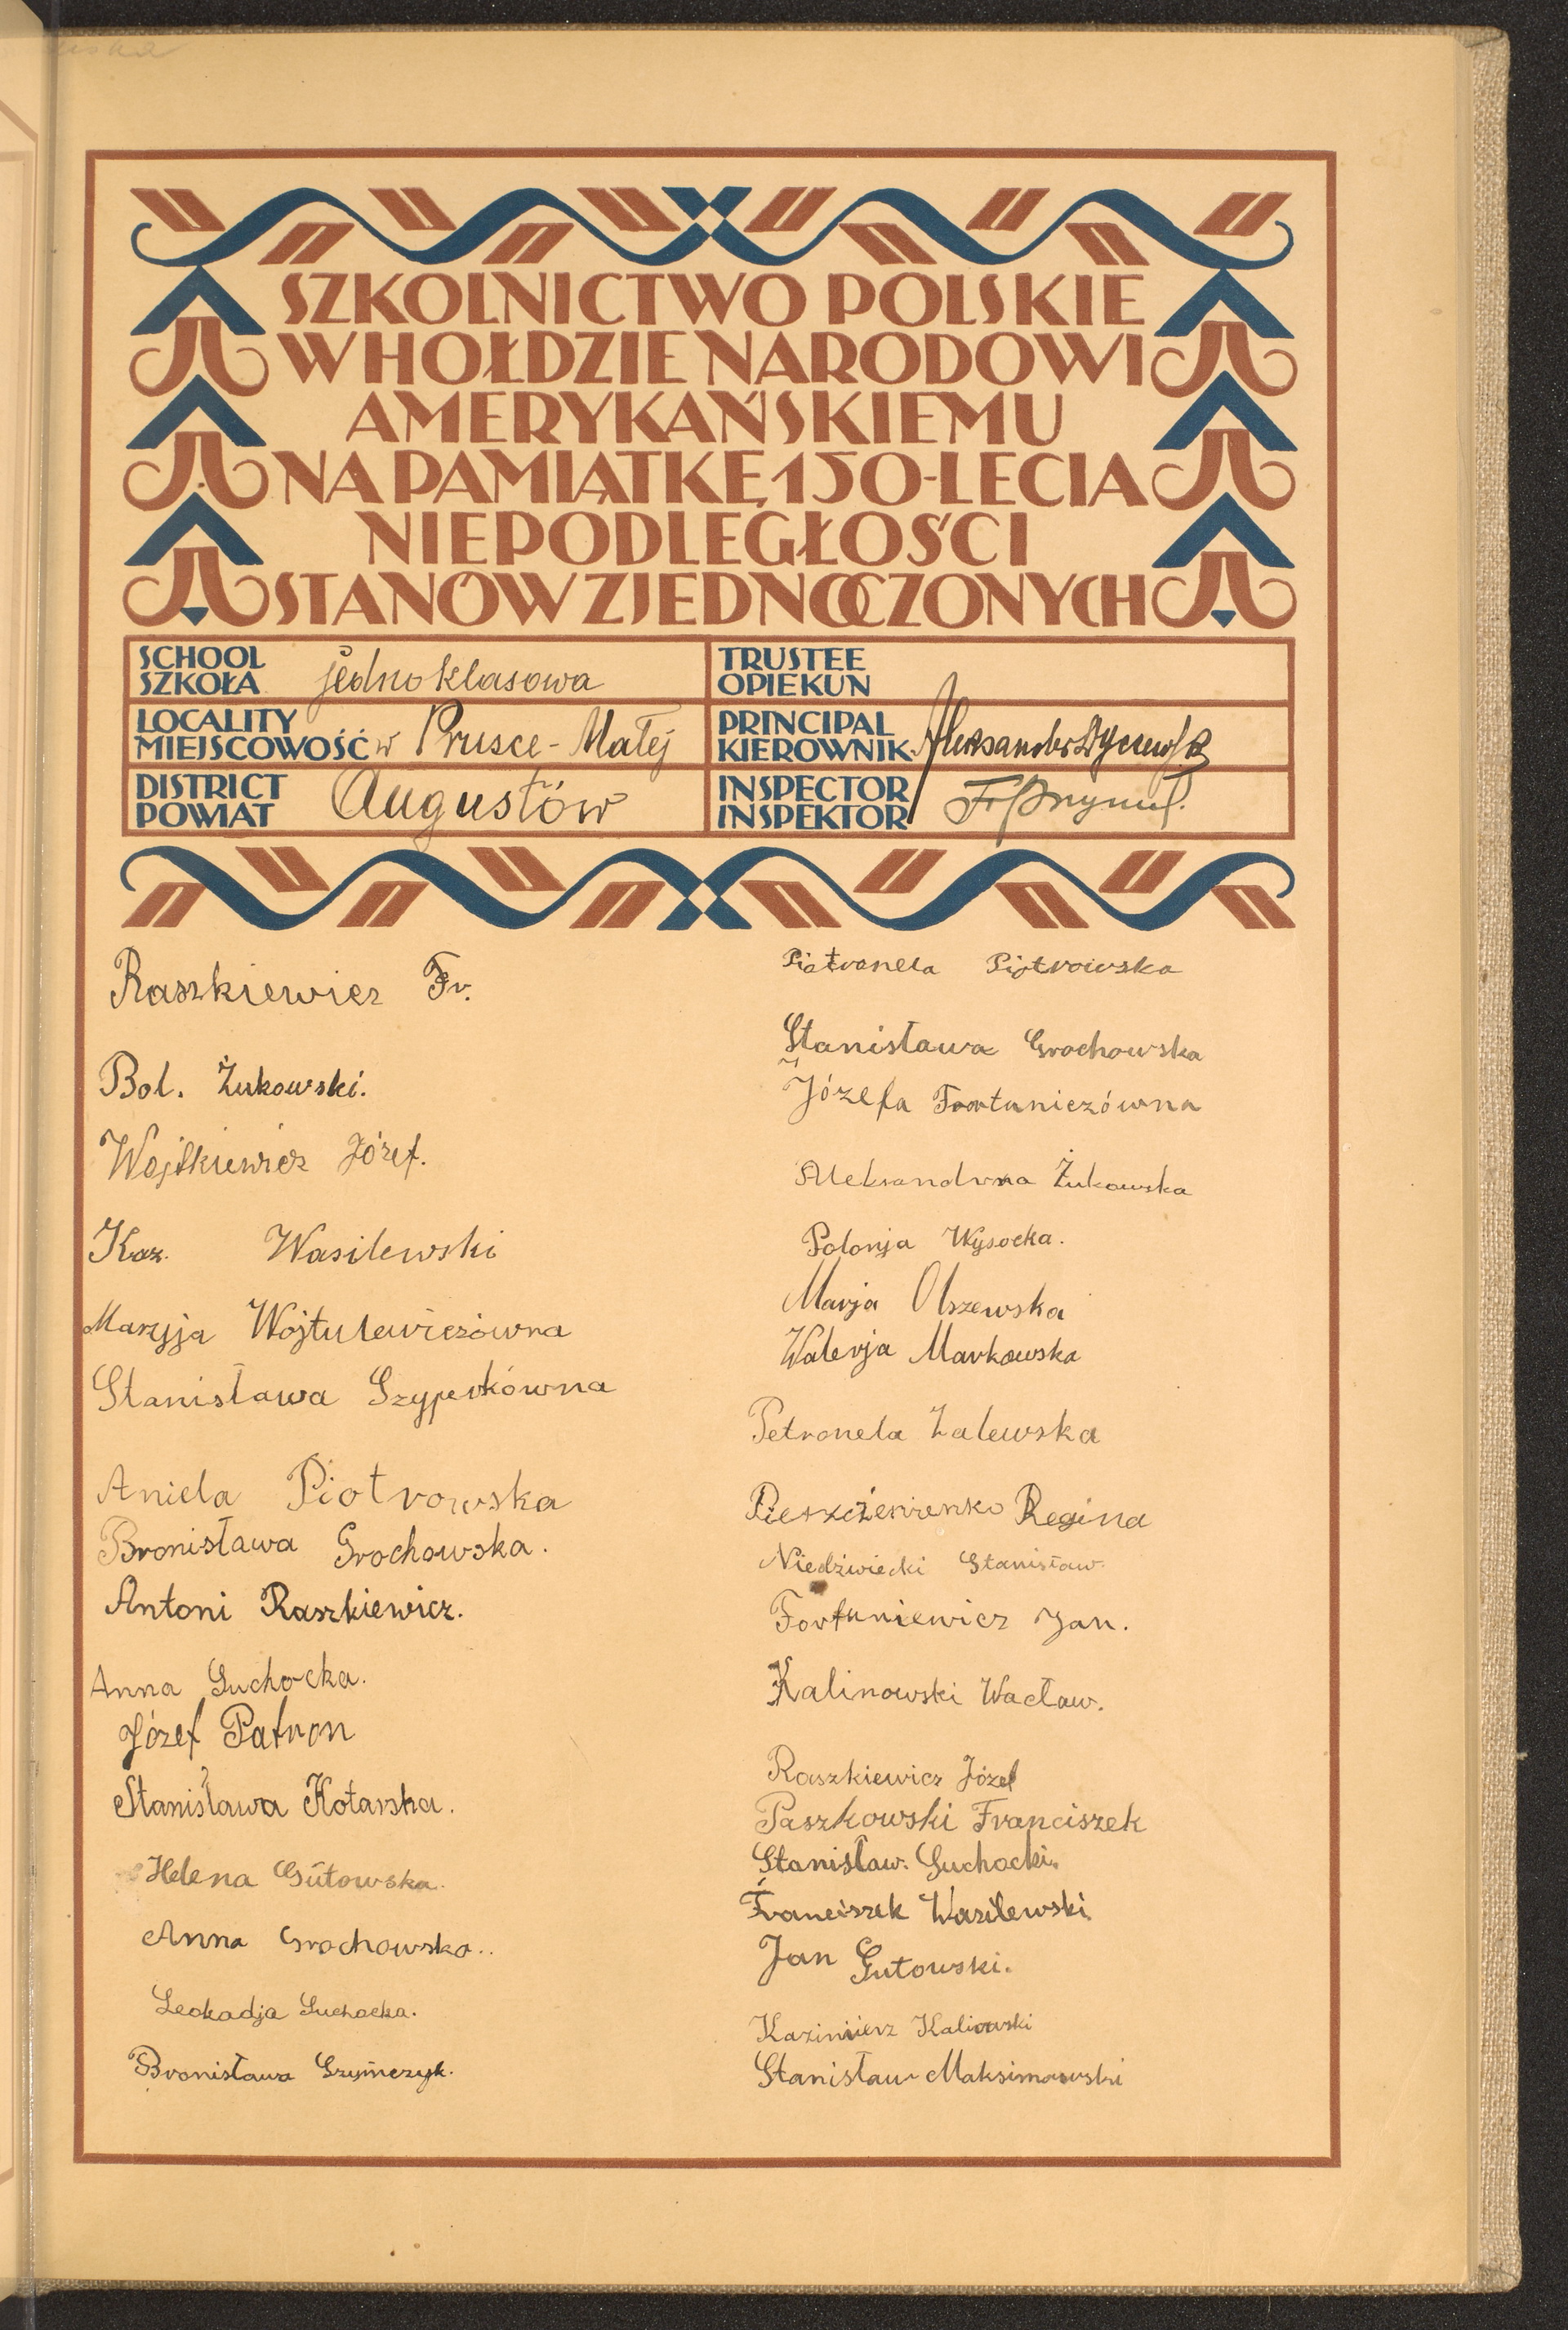 SZKOLNICTWO POLSKIE
W HOŁDZIE NARODOWI
AMERYKAŃSKIEMU
NA PAMIĄTKĘ 150-LECIA
NIEPODLEGŁOŚCI
STANÓW ZJEDNOCZONYCH
SCHOOL
SZKOŁA jednoklasowa
TRUSTEE
OPIEKUN
LOCALITY
MIEJSCOWOŚĆ w Prusce-Małej
PRINCIPAL
KIEROWNIK Aleksander
DISTRICT
POWIAT Augustów
INSPECTOR
INSPEKTOR Fr.
Raszkiewicz Fr.
Bol. Żukowski.
Wojtkiewicz Józef.
Kaz. Wasilewski
Maryja Wojtulewiczówna
Stanisława Szyperkówna
Aniela Piotrowska
Bronisława Grochowska.
Antoni Raszkiewicz.
Anna Suchocka.
Józef Patron
Stanisława Kotarska.
Helena Gutowska.
Anna Grochowska..
Leokadja Suchocka.
Bronisława Szymczyk.
Piotronela Piotrowska
Stanisława Grochowska
Józefa Fortuniezówna
Aleksandra Żukowska
Polonja Wysocka.
Marja Olszewska
Walerja Markowska
Petronela Zalewska
Regina
Niedźwiecki Stanisław.
Fortuniewicz Jan.
Kalinowski Wacław.
Raszkiewicz Józef
Paszkowski Franciszek
Stanisław. Suchocki.
Franciszek Wasilewski.
Jan Gutowski.
Kazimierz Kaliowski
Stanisław Maksimowski